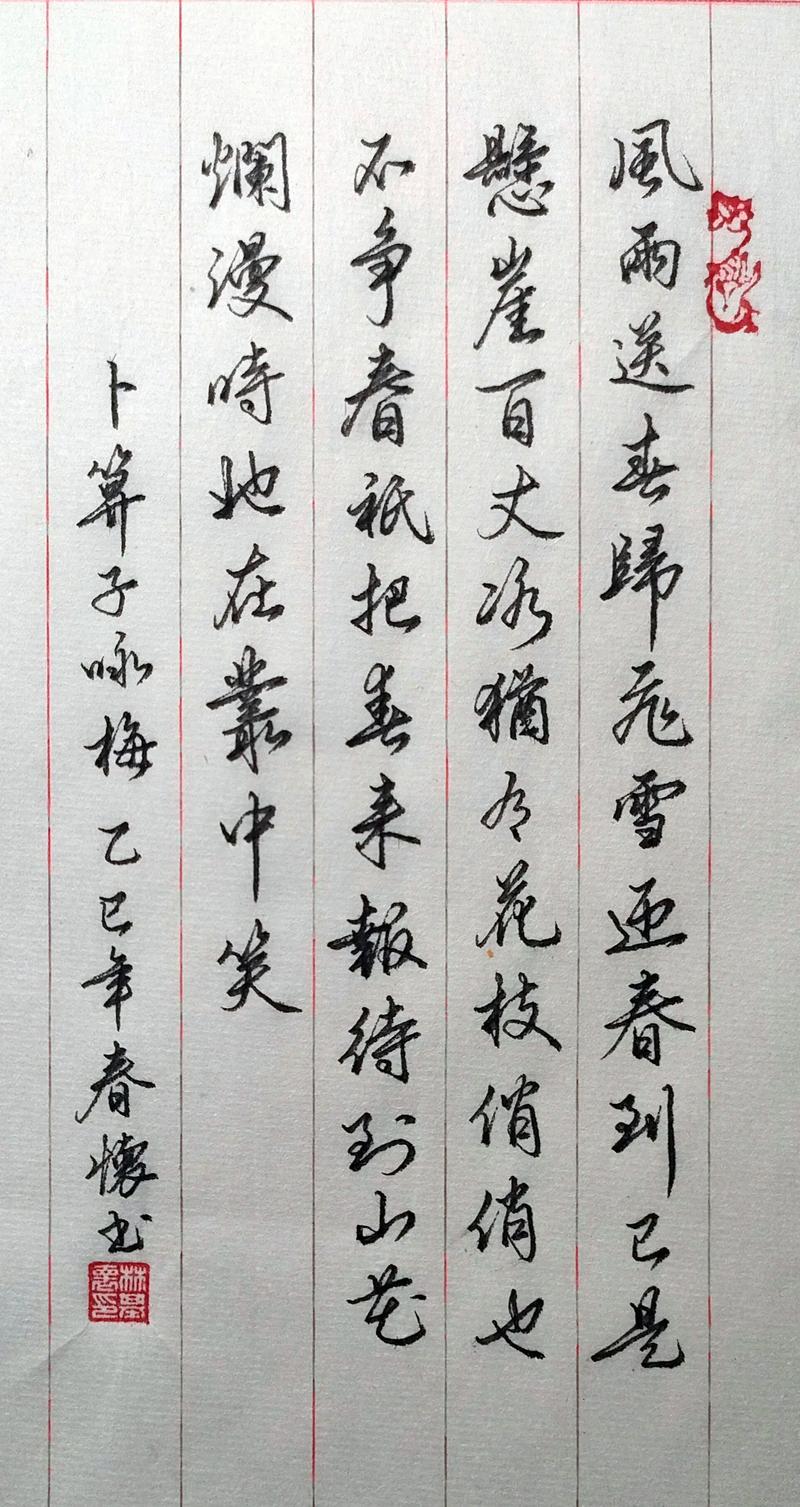 風雨送春歸飛雪迎春到已是
懸崖百丈冰猶有花枝俏俏也
不争春祇把春来報待到山花
爛漫時她在叢中笑
卜算子咏梅 乙巳年春懷书